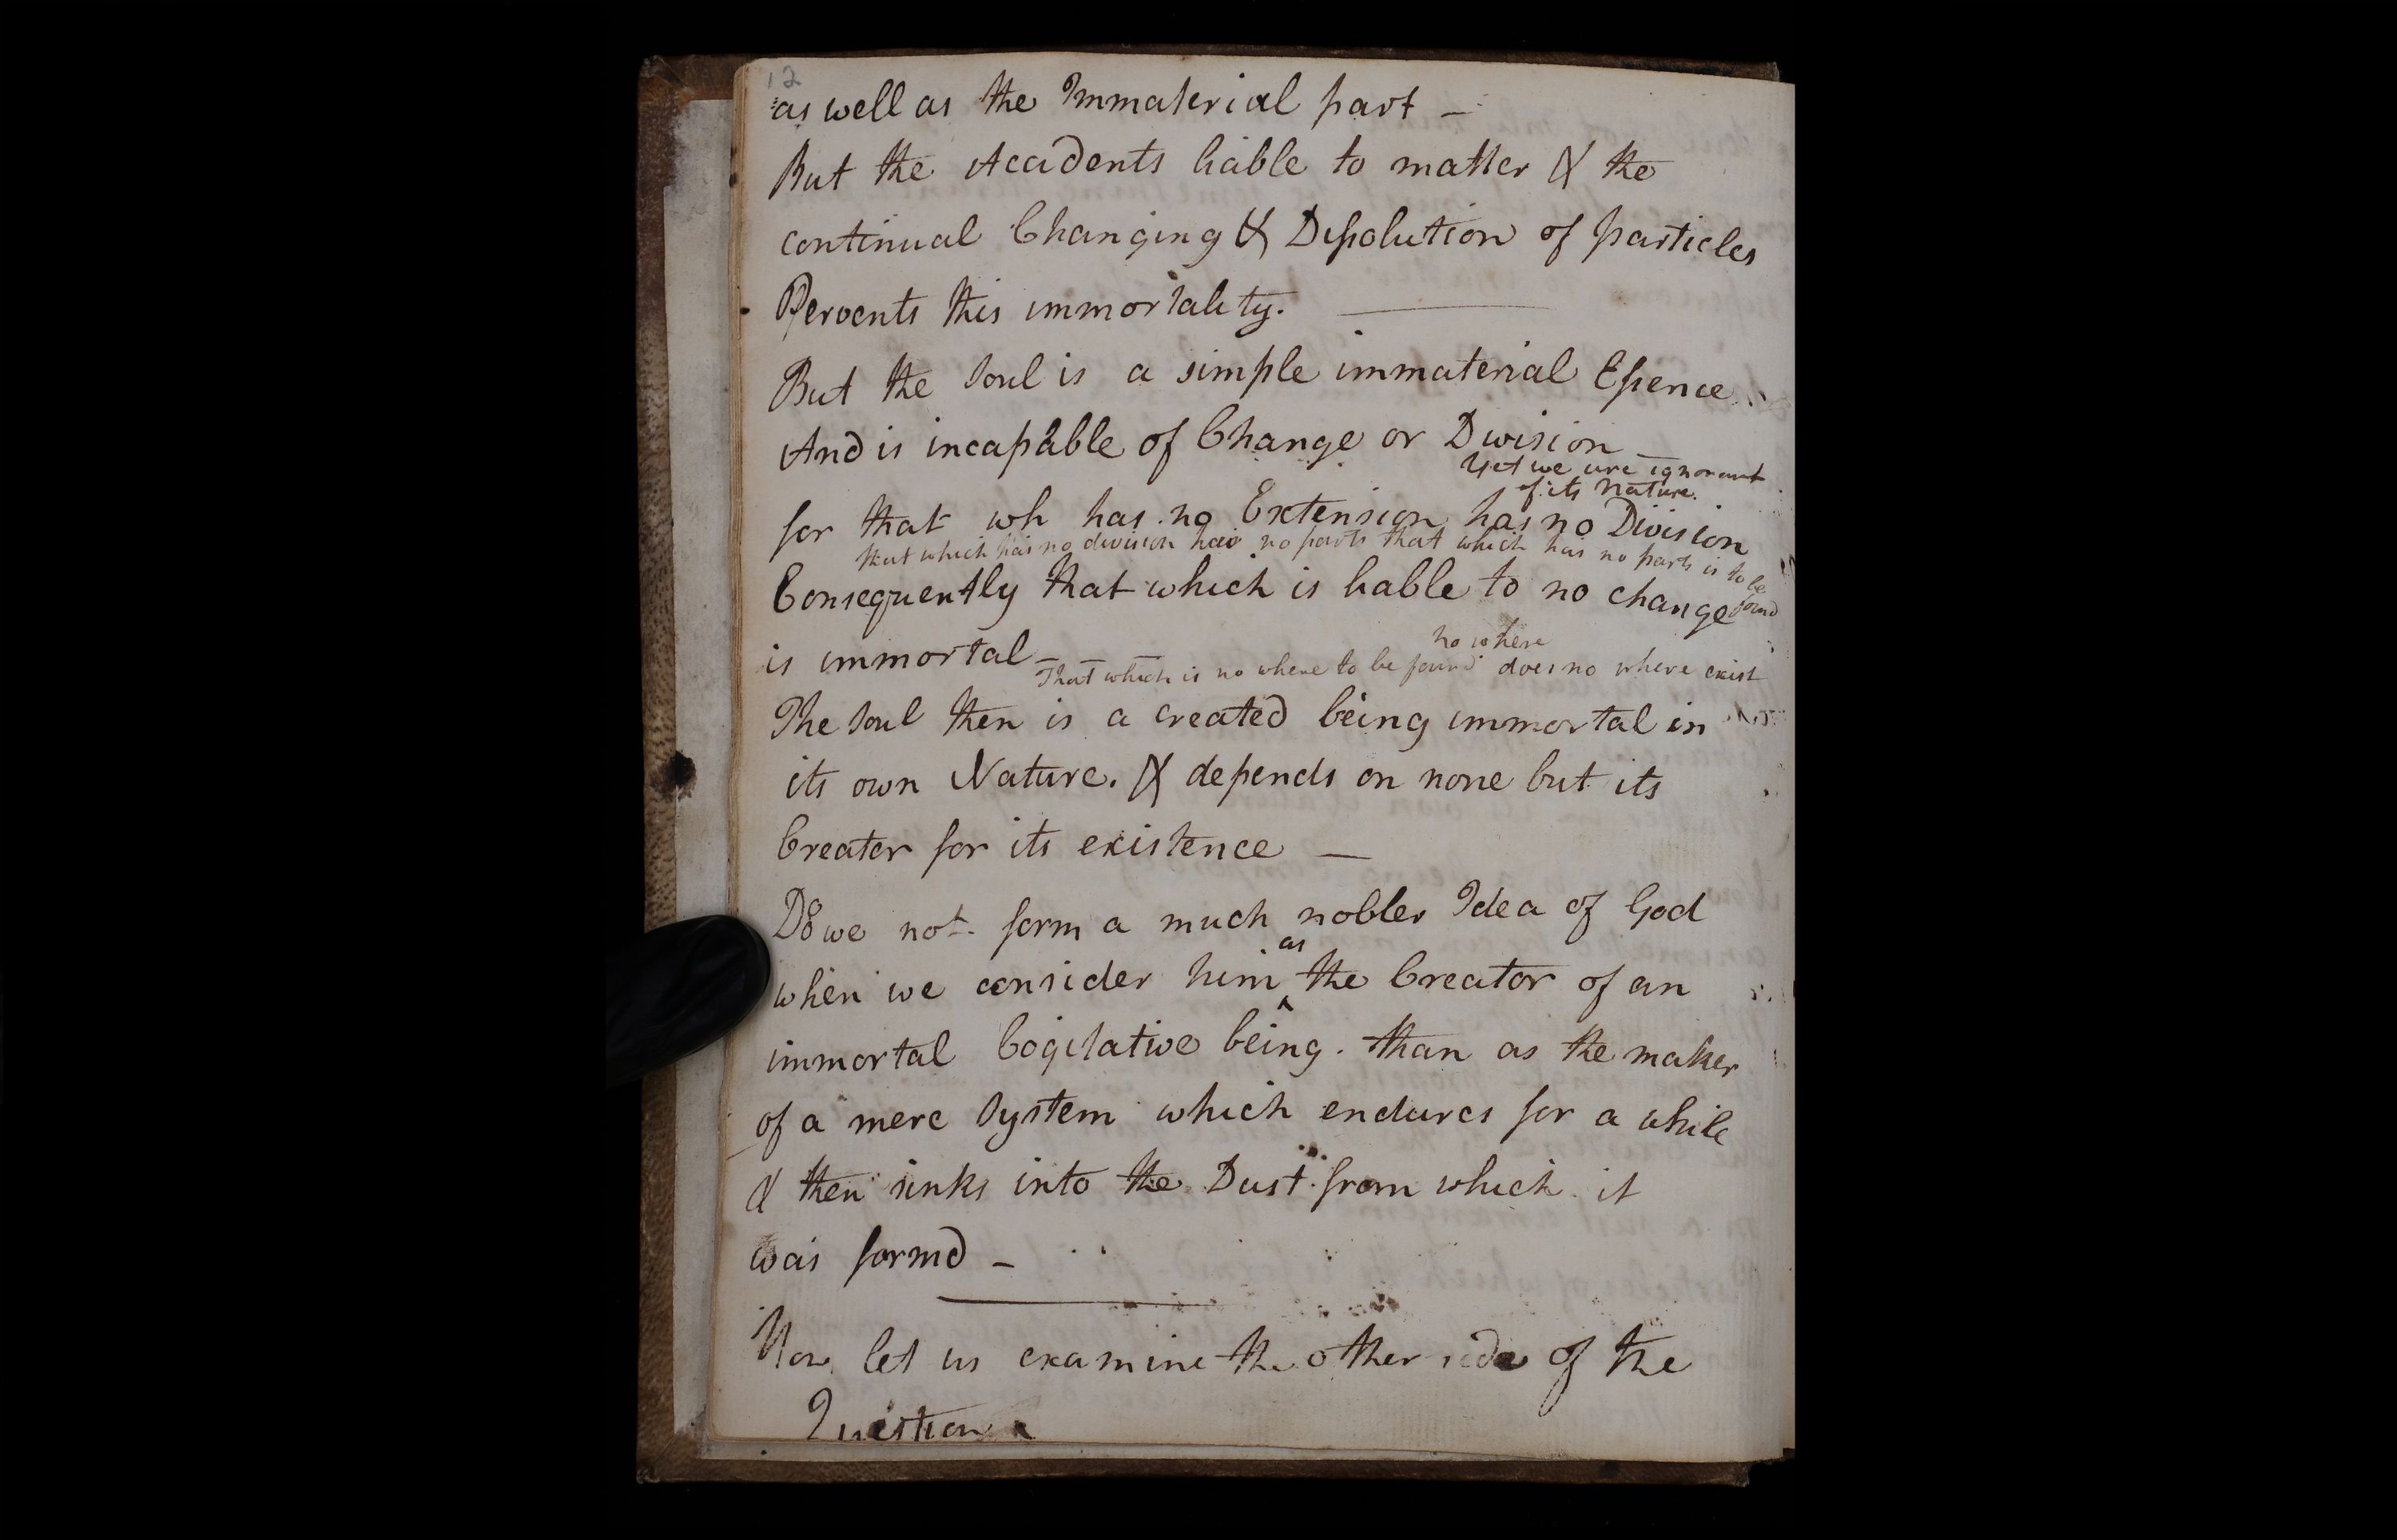 12
as well as the Immaterial part —
But the Accidents liable to matter & the
continual Changing & Dissolution of particles
Pervents this immortality. ———
But the Soul is a simple immaterial Essence
And is incapable of Change or Division —
Yet we are ignorant
of its Nature.
for that wh has no Extension has no Division
that which has no division has no parts that which has no parts is to be
found
Consequently that which is liable to no change
no where
is immortal —
That which is no where to be found does no where exist
The Soul then is a created being immortal in
its own Nature. & depends on none but its
Creator for its existence —
Do we not form a much nobler Idea of God
as
when we consider him ^ the Creator of an
immortal Cogitative being. than as the maker
of a mere System which endures for a while
& then sinks into the Dust from which it
was formd —
Now let us examine the other side of the
Question